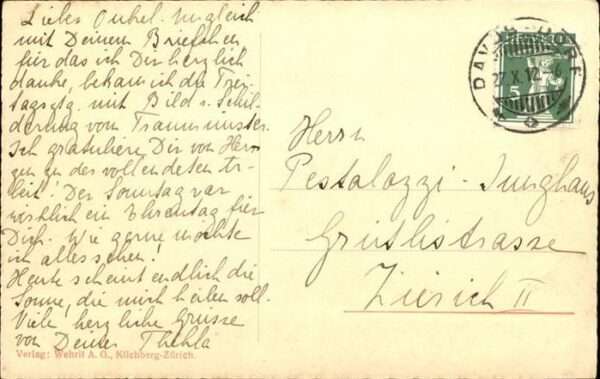 Lieber Onkel. Zugleich
mit Deinem Briefchen
für das ich Dir herzlich
danke, bekam ich die Frei-
tagsztg. mit Bild u. Schil-
derung vom Fraumünster.
Ich gratuliere Dir von Her-
zen zu der vollendeten Ar-
beit! Der Sonntag war
wirklich ein Ehrentag für
Dich. Wie gerne möchte
ich alles sehen!
Heute scheint endlich die
Sonne, die mich heilen soll.
Viele herzliche Grüsse
von Deiner Thekla
Verlag: Wehrli A. G., Kilchberg-Zürich.
DAVOS-DORF
27.X.12.-6
5
Herrn
Pestalozzi-Junghans
Grütlistrasse
Zürich II